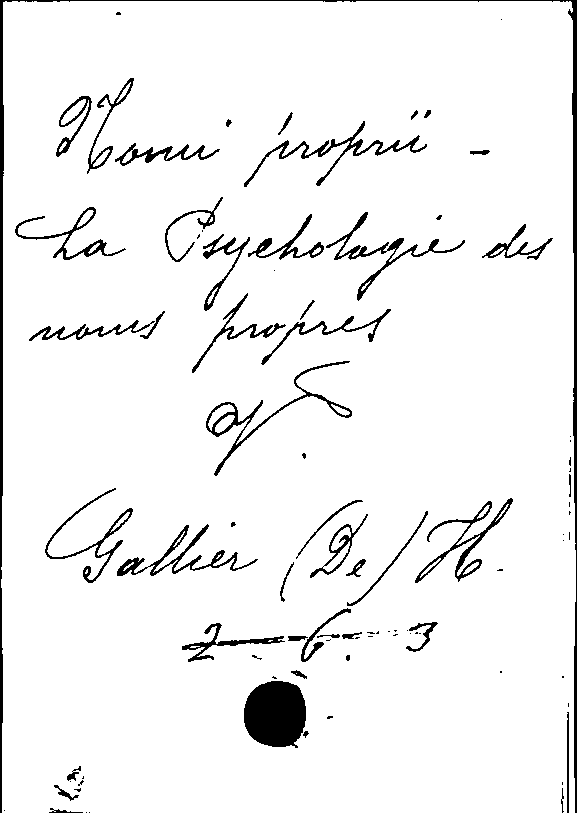 Nomi proprii -
La Psychologie des
noms propres
V.
Gallier (De) H.
2. 6. 3